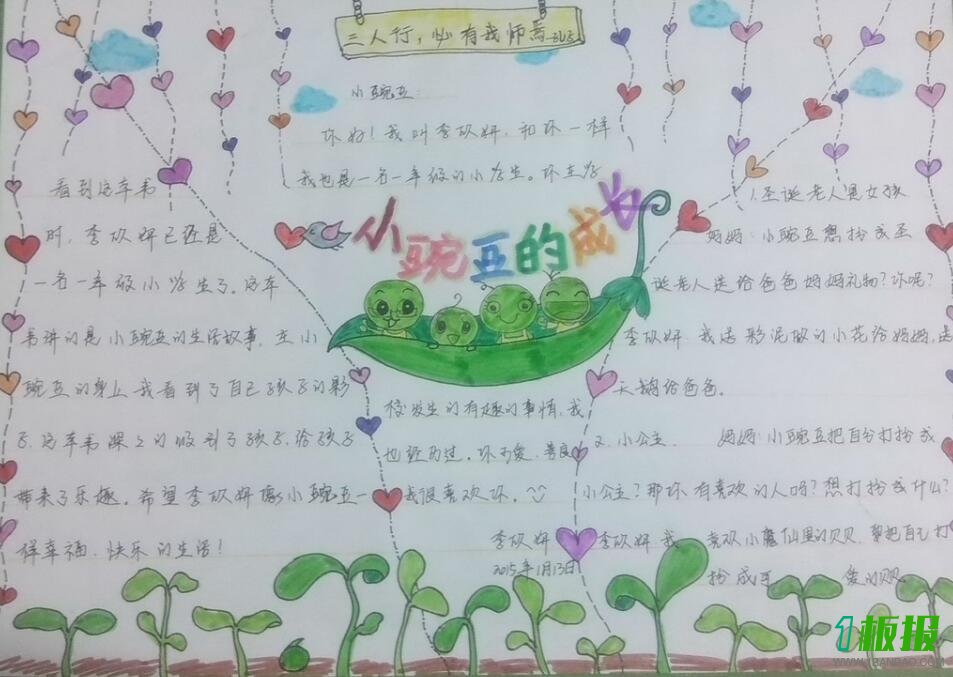 三人行，必有我师焉
小豌豆：
你好！我叫李玖妍，和你一样
我也是一名一年级的小学生。你在学
小豌豆的成长
校发生的有趣的事情，我
也经历过。你可爱、善良
我很喜欢你。
李玖妍
2015年1月13日
看到这本书
时，李玖妍已经是
一名一年级小学生了。这本
书讲的是小豌豆的生活故事，在小
豌豆的身上我看到了自己孩子的影
子。这本书深深的吸引了孩子，给孩子
带来了乐趣。希望李玖妍像小豌豆一
样幸福、快乐的生活！
1.圣诞老人是女孩
妈妈：小豌豆想扮成圣
诞老人送给爸爸妈妈礼物？你呢？
李玖妍：我送彩泥做的小花给妈妈，送
给爸爸。
2.小公主. 妈妈：小豌豆把自己打扮成
小公主？那你有喜欢的人吗？想打扮成什么？
李玖妍：我喜欢小魔仙里的贝贝，要把自己打
扮成可爱的贝贝
1板报
WWW.1BANBAO.COM